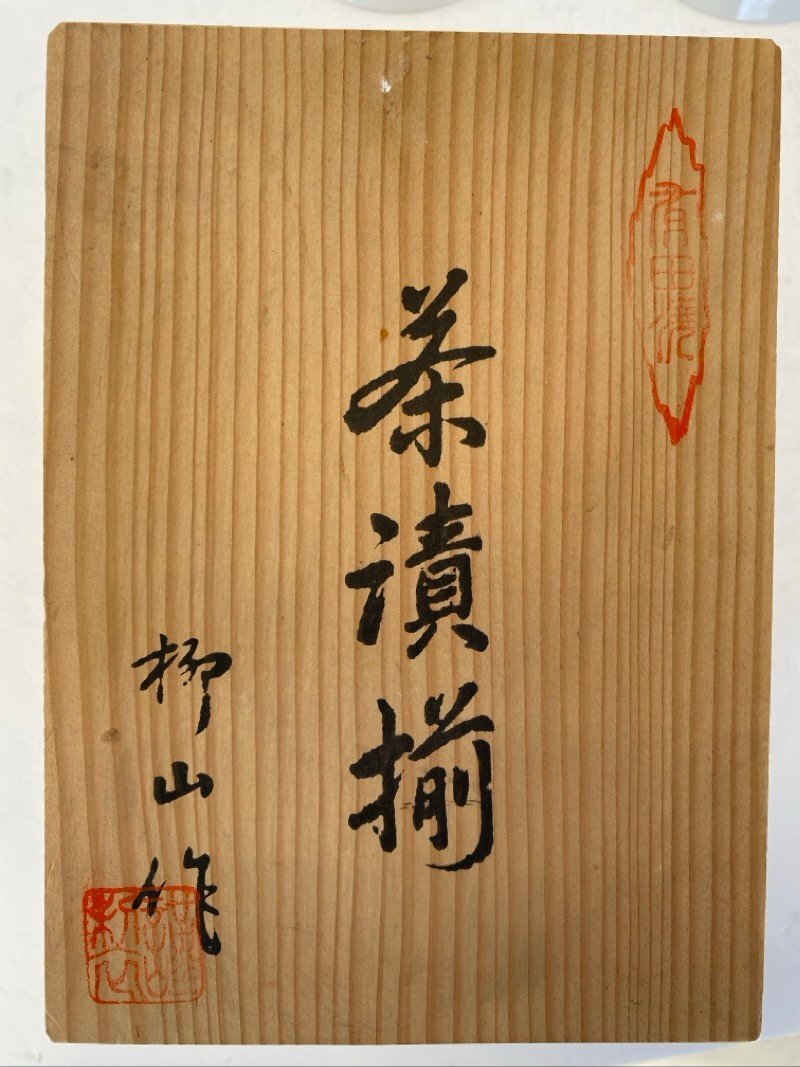 有田焼
茶漬揃
柳山作